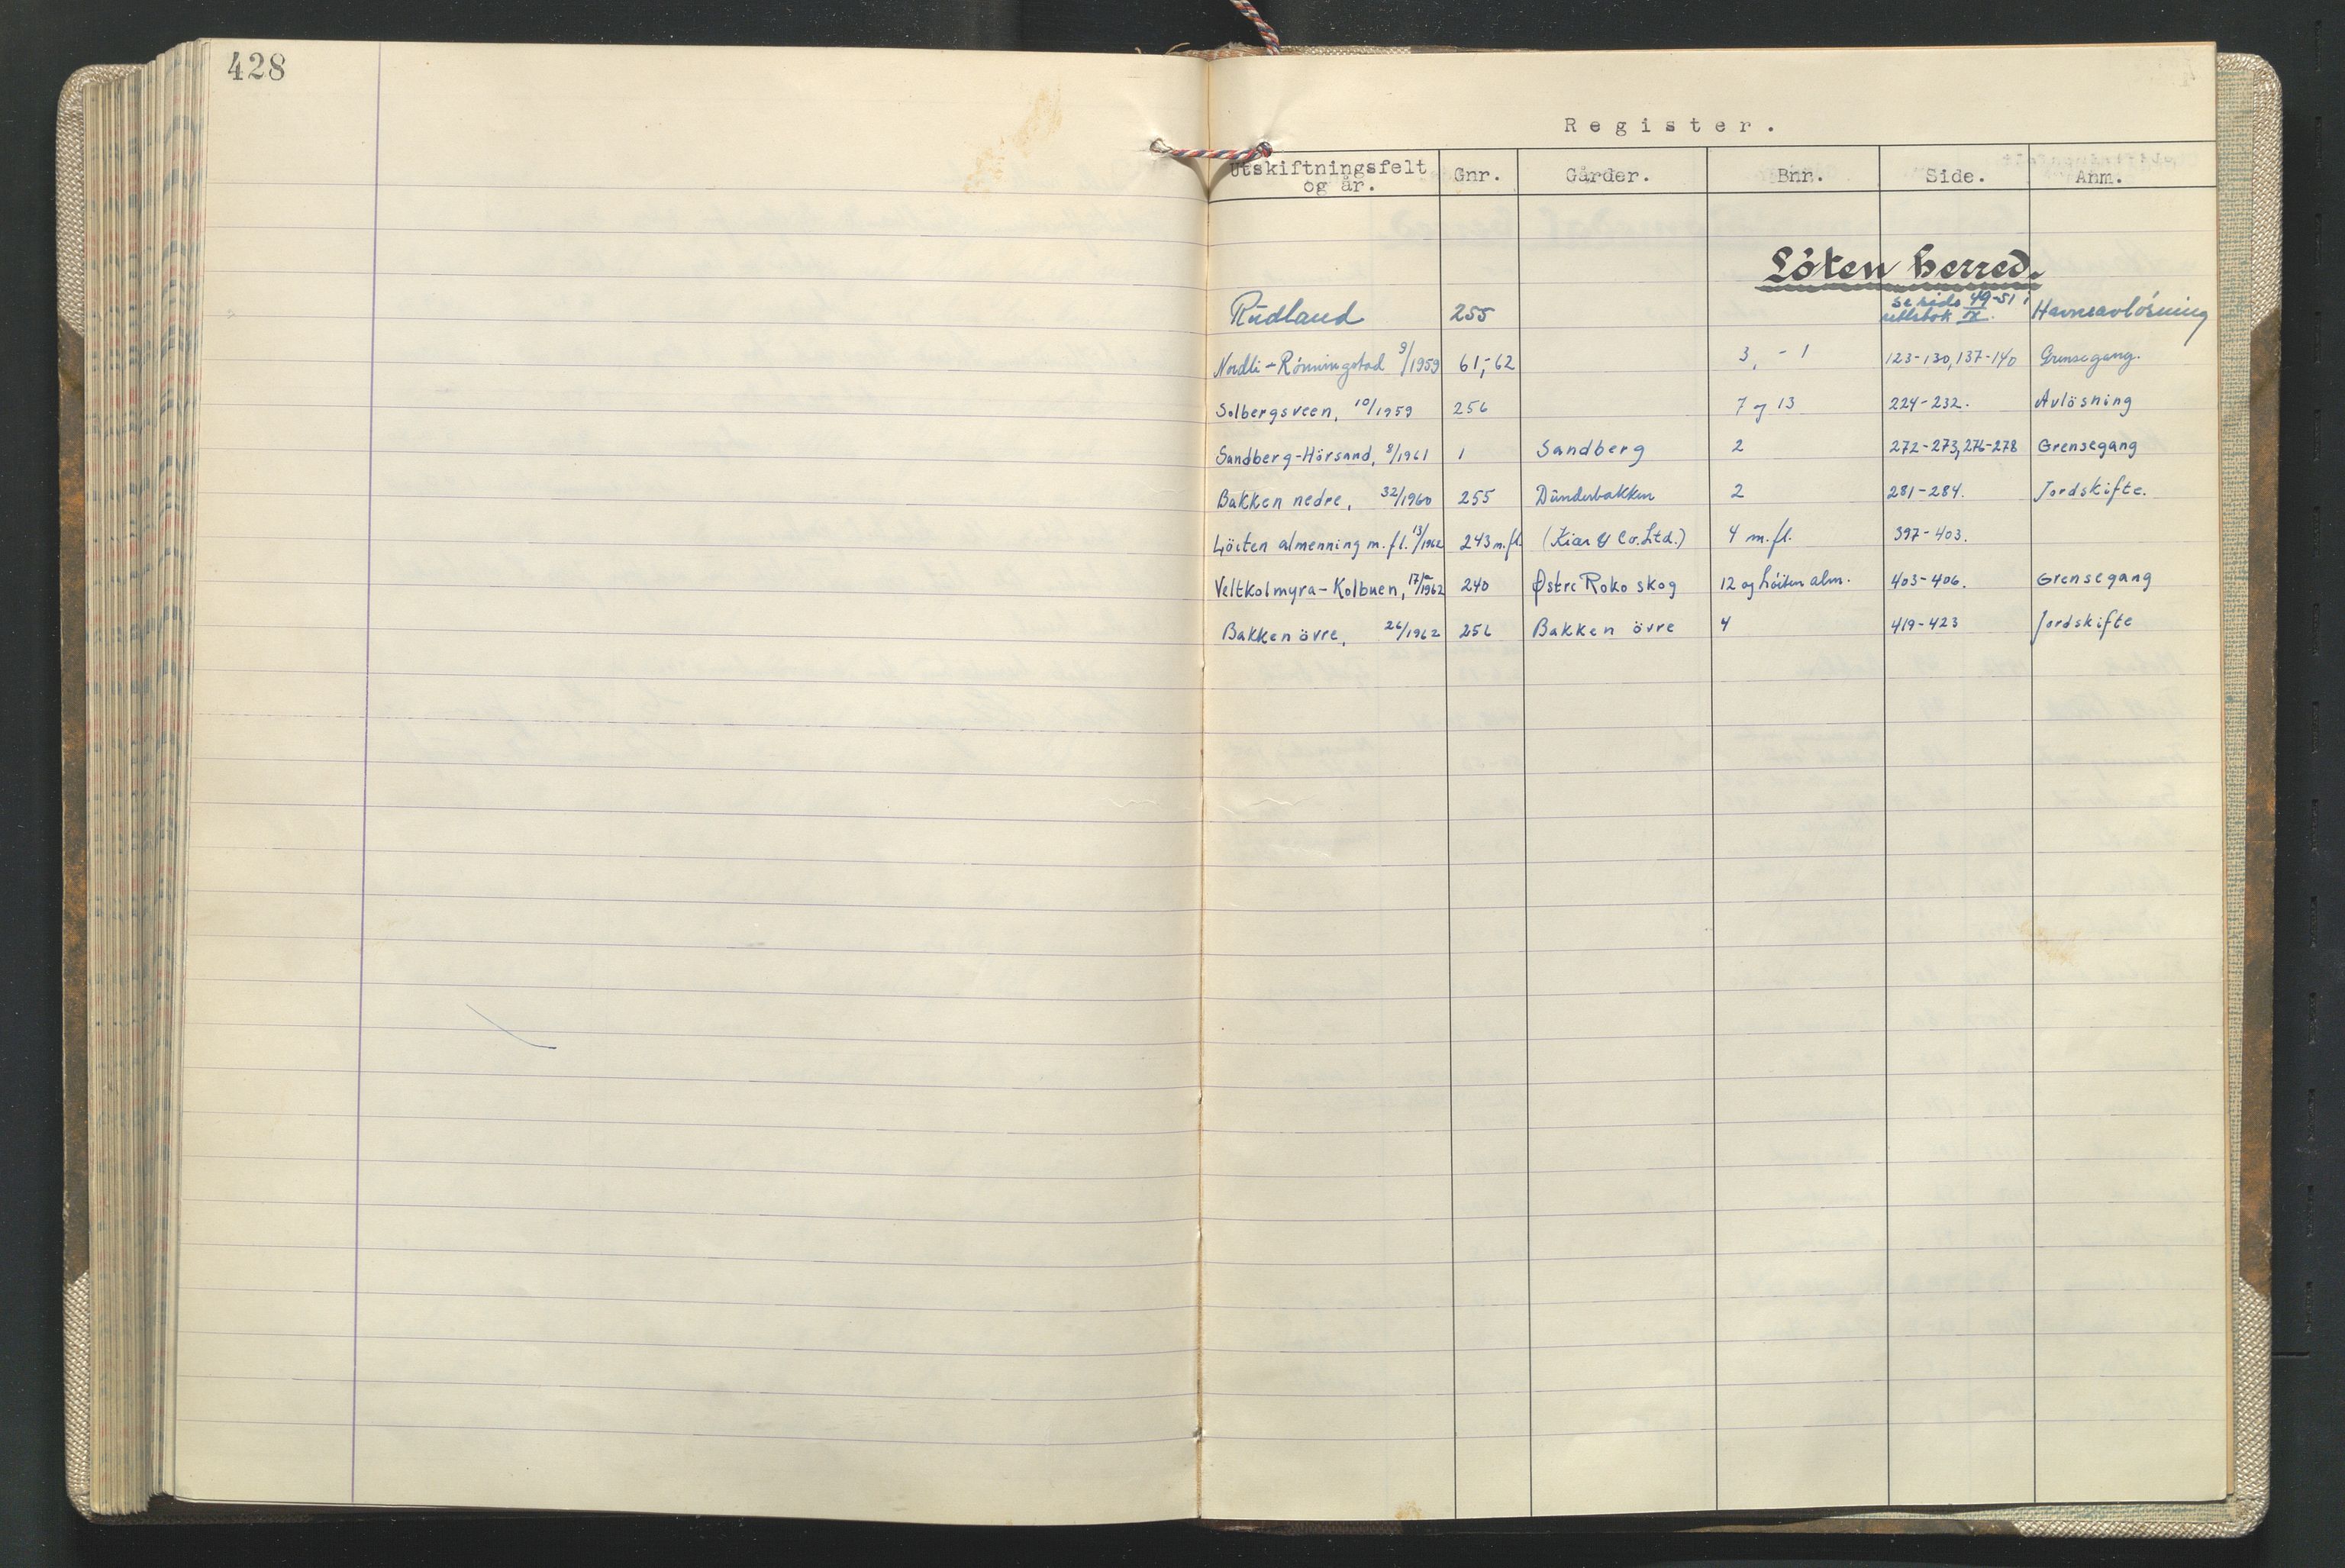 428
Register.
Utskiftningsfelt og år. Gnr. Gårder. Bnr. Side. Anm.
Löten herred.
Rudland 255 se side 49-51 i rettsbok IX. Havneavlösning
Nordli-Rönningstad 9/1959 61,-62 3, - 1 123-130,137-140 Grensegang.
Solbergsveen, 10/1959 256 7 og 13 224-232. Avlösning
Sandberg-Hörsand, 8/1961 1 Sandberg 2 272-273,276-278 Grensegang
Bakken nedre, 32/1960 255 Dunderbakken 2 281-284. Jordskifte.
Löiten almenning m.fl. 13/1962 243 m.fl. (Kiær & Co. Ltd.) 4 m.fl. 397-403.
Veltkolmyra-Kolbuen, 17/1962 240 Østre Roko skog 12 og Löiten alm. 403-406. Grensegang
Bakken övre, 26/1962 256 Bakken övre 4 419-423 Jordskifte